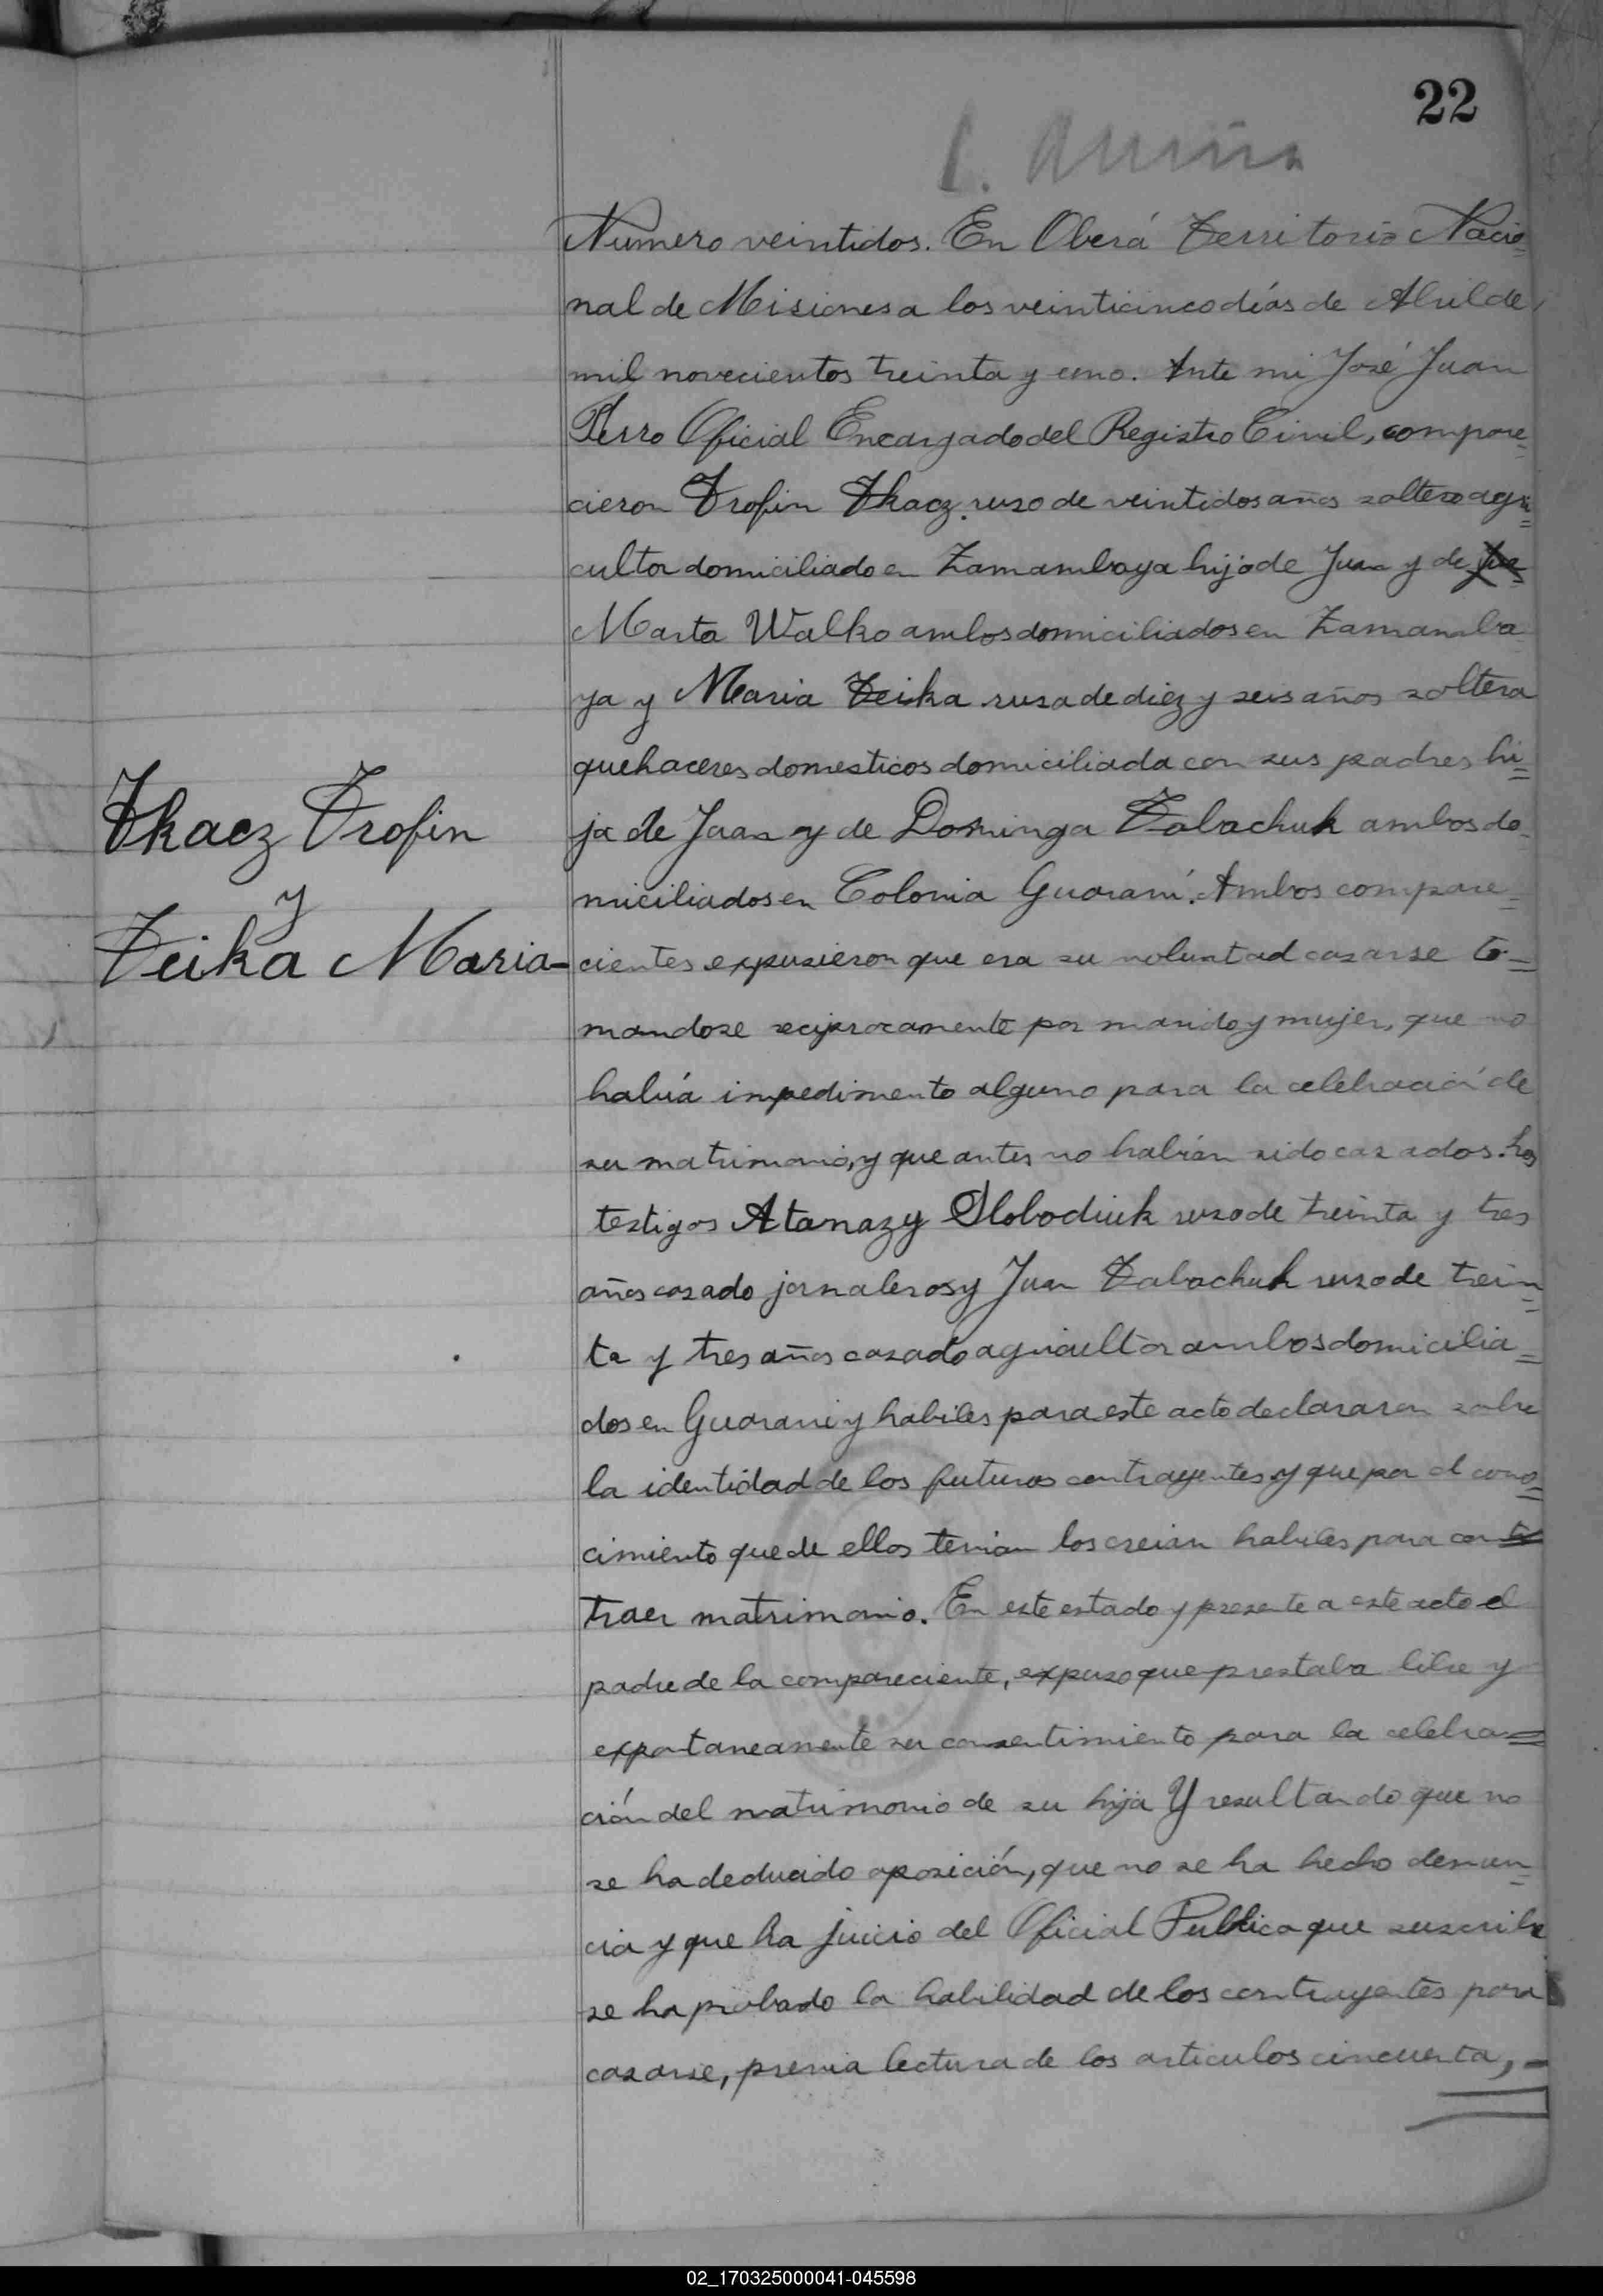 22
Numero veintidos. En Oberá Territorio Nacio-
nal de Misiones a los veinticinco días de Abril de
mil novecientos treinta y uno. Ante mi José Juan
Oficial Encargado del Registro Civil, compare=
cieron Trofin Tkacz ruso de veintidos años soltero agri=
cultor domiciliado en Zamambaya hijo de Juan y de
Marta Walko ambos domiciliados en Zamamba-
ya y Maria Teika rusa de diez y seis años soltera
quehaceres domesticos domiciliada con sus padres hi=
Tkacz Trofin
y
Teika Maria-
ja de Juan y de Dominga Tabachuk ambos do-
miciliados en Colonia Guaraní. Ambos compare=
cientes expusieron que era su voluntad casarse to=
mandose reciprocamente por marido y mujer, que no
había impedimento alguno para la celebració de
su matrimonio, y que antes no habían sido casados. Los
testigos Atanazy Slobodiuk ruso de treinta y tres
años casado jornaleros y Juan Tabachuk ruso de trein=
ta y tres años casado agricultor ambos domicilia=
dos en Guarani y habiles para este acto declararon sobre
la identidad de los futuros contrayentes y que por el cono=
cimiento que de ellos tenian los creian habiles para con
traer matrimonio. En este estado y presente a este acto el
padre de la compareciente, expuso que prestaba libre y
expontaneamente su consentimiento para la celebra=
ción del matrimonio de su hija Y resultando que no
se ha deducido oposición, que no se ha hecho denun=
cia y que ha juicio del Oficial Publico que suscribe
se ha probado la habilidad de los contrayentes para
casarse, previa lectura de los articulos cincuenta,-
02_170325000041-045598